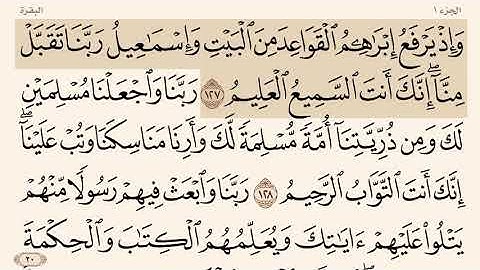 الجزء ١ البقرة
وَإِذْ يَرْفَعُ إِبْرَٰهِـۧمُ ٱلْقَوَاعِدَ مِنَ ٱلْبَيْتِ وَإِسْمَٰعِيلُ رَبَّنَا تَقَبَّلْ
مِنَّآ ۖ إِنَّكَ أَنتَ ٱلسَّمِيعُ ٱلْعَلِيمُ ١٢٧ رَبَّنَا وَٱجْعَلْنَا مُسْلِمَيْنِ
لَكَ وَمِن ذُرِّيَّتِنَآ أُمَّةً مُّسْلِمَةً لَّكَ وَأَرِنَا مَنَاسِكَنَا وَتُبْ عَلَيْنَآ ۖ
إِنَّكَ أَنتَ ٱلتَّوَّابُ ٱلرَّحِيمُ ١٢٨ رَبَّنَا وَٱبْعَثْ فِيهِمْ رَسُولًا مِّنْهُمْ
يَتْلُوا۟ عَلَيْهِمْ ءَايَٰتِكَ وَيُعَلِّمُهُمُ ٱلْكِتَٰبَ وَٱلْحِكْمَةَ
٢٠